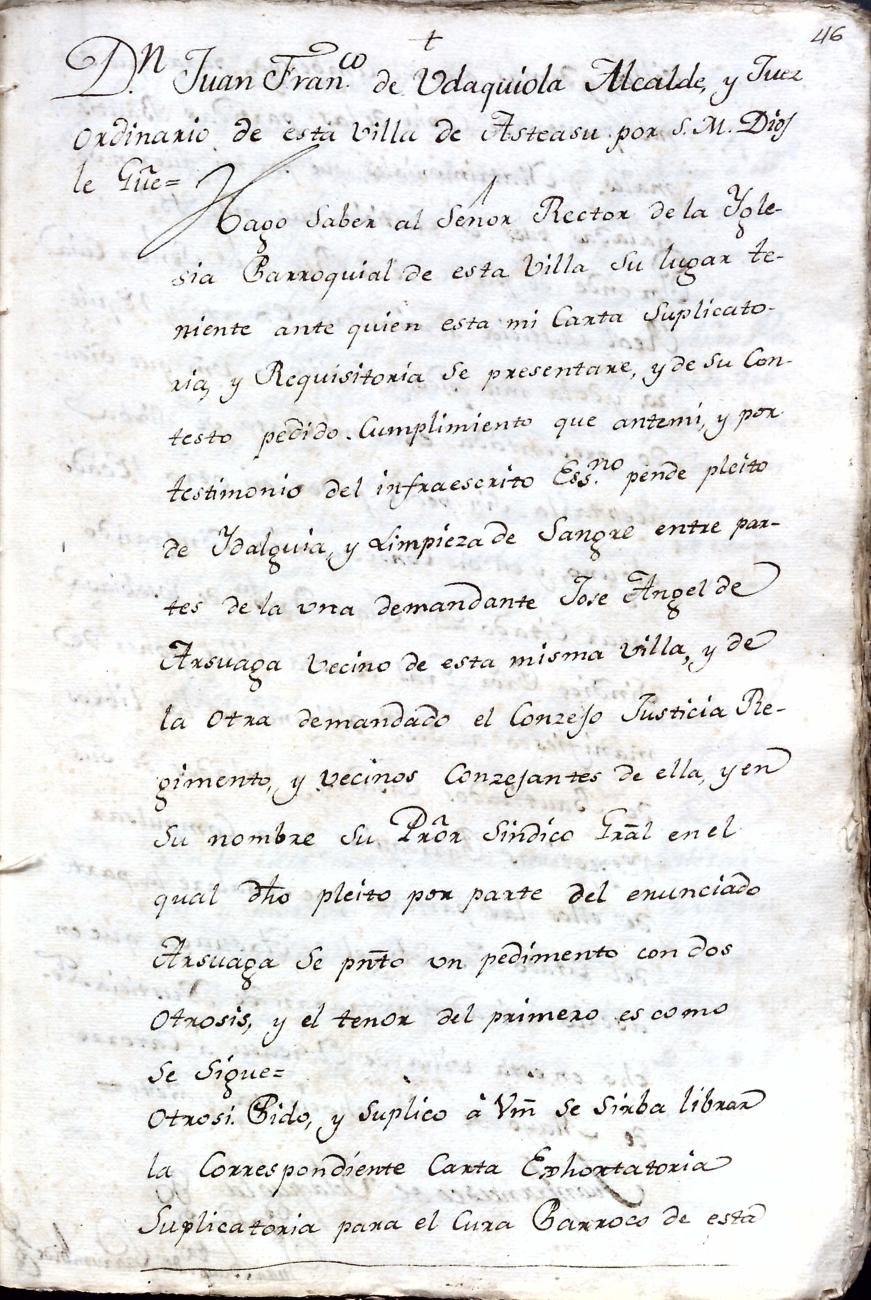 46
+
D.n Juan Fran.co de Udaquiola Alcalde, y Juez
Ordinario de esta Villa de Asteasu por S. M. Dios
le Gũe=
Hago saber al Señor Rector de la Ygle-
sia Parroquial de esta Villa su lugar te-
niente ante quien esta mi Carta Suplicato-
ria, y Requisitoria se presentare, y de su Con-
testo pedido Cumplimiento que antemi, y por
testimonio del infraescrito Ess.no pende pleito
de Ydalguia, y Limpieza de Sangre entre par-
tes de la una demandante Jose Angel de
Arsuaga Vecino de esta misma Villa, y de
la otra demandado el Conzejo Justicia Re-
gimento, y Vecinos Conzejantes de ella, y en
Su nombre Su Prõr Sindico Grãl en el
qual dho pleito por parte del enunciado
Arsuaga Se pñto un pedimento con dos
Otrosis, y el tenor del primero es como
Se Sigue=
Otrosi. Pido, y Suplico à Vm̃ Se Sirba librar
la Correspondiente Carta Exhortatoria
Suplicatoria para el Cura Parroco de esta